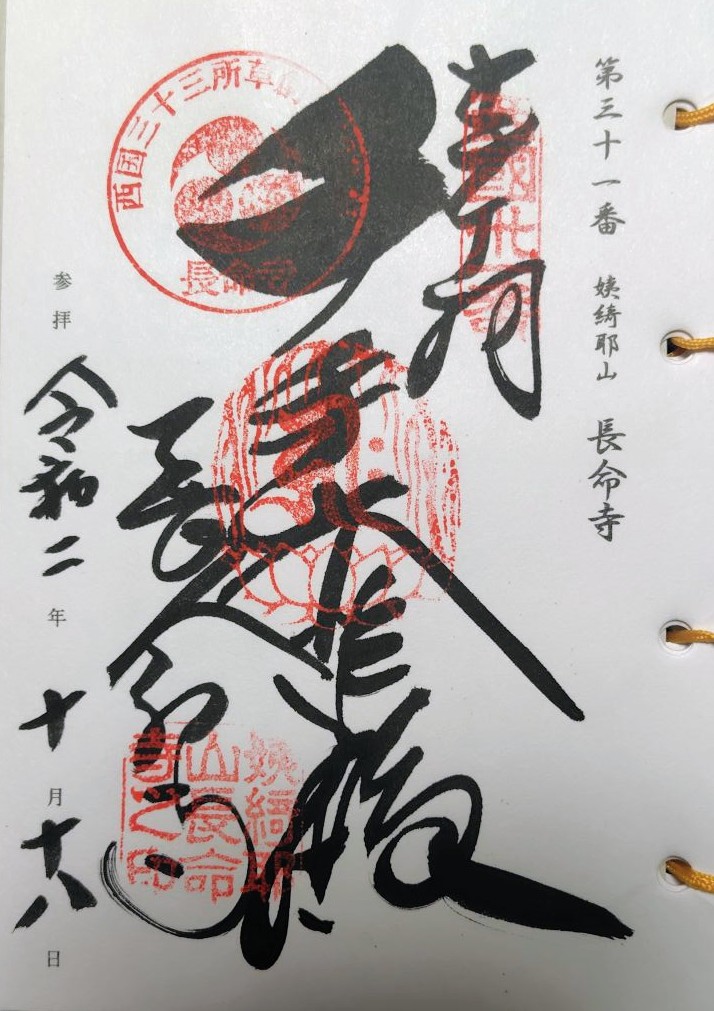 第三十一番 姨綺耶山 長命寺
西國卅一番
大悲殿
長命寺
西国三十三所草創
長命寺
姨綺耶
山長命
寺之印
参拝 令和二年十月十八日